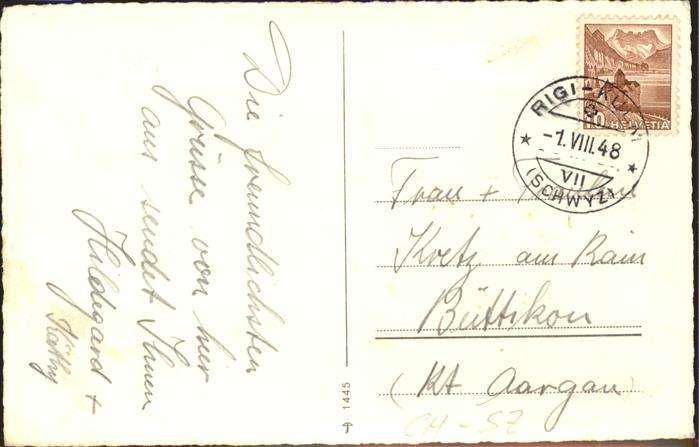 Die freundlichsten
Grüsse von hier
aus sendet Ihnen
Hildegard +
Kathy
1445
10 HELVETIA
RIGI-KULM
-1.VIII.48
VII
(SCHWYZ)
Frau +
Kretz am Rain
Büttikon
(Kt Aargau)
CH-SZ